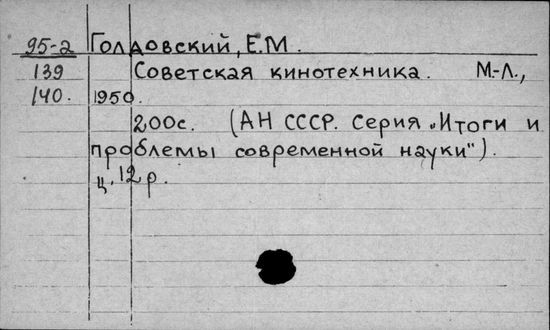 95-2 Голдовский, Е.М.
139 Советская кинотехника. М-Л.,
140. 1950.
200с. (АН СССР. Серия „Итоги и
проблемы современной науки").
ц. 12р.